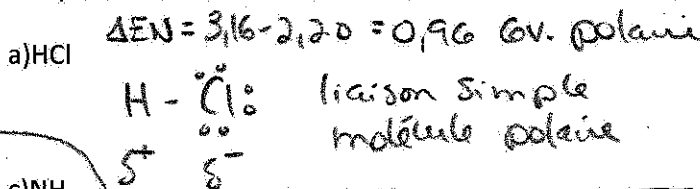 a)HCl ΔEN = 3,16-2,20 = 0,96 cov. polaire
H - Cl liaison simple
molécule polaire
δ+ δ-
c)NH